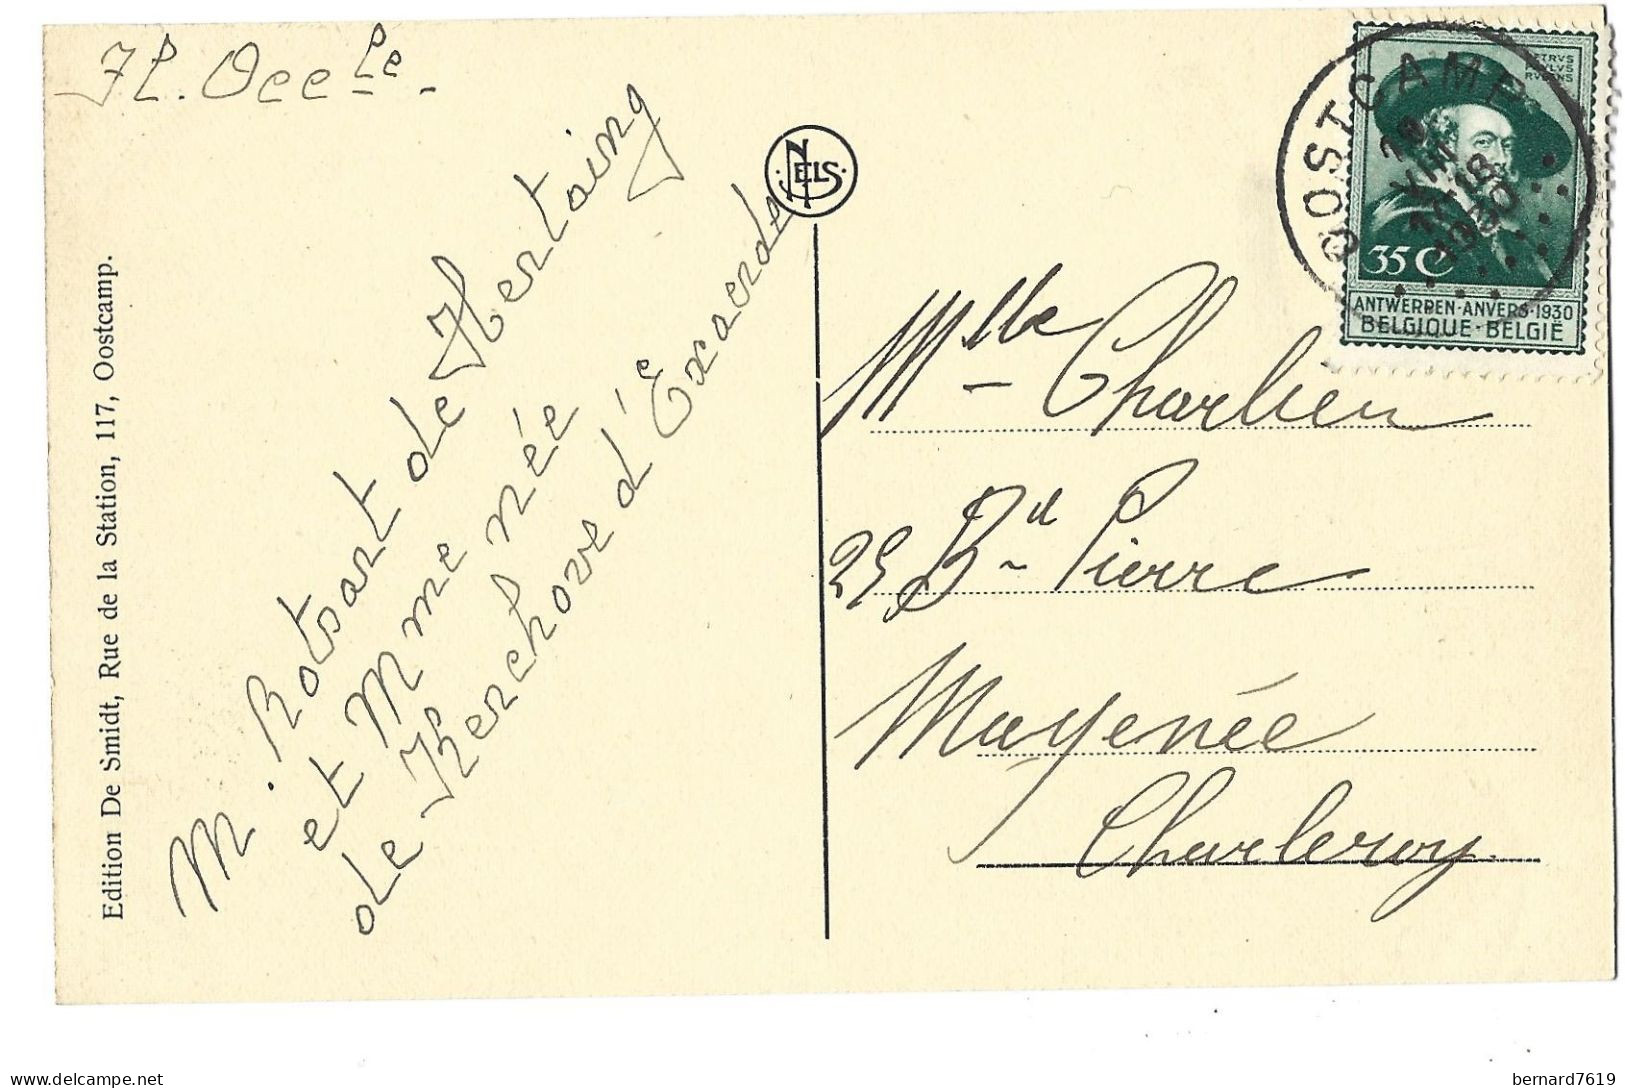 Fl. Occle.
M. Rotsart de Hertaing
et Mme née
de Kerchove d'Exaerde
Edition De Smidt, Rue de la Station, 117, Oostcamp.
NELS
OOSTCAMP
18
1930
PETRVS
PAVLVS
RVBENS
35 C
ANTWERPEN·ANVERS·1930
BELGIQUE-BELGIË
Mlle Charlien
25 Bd Pierre
Mayenée
Charleroy.
bernard7619
delcampe.net